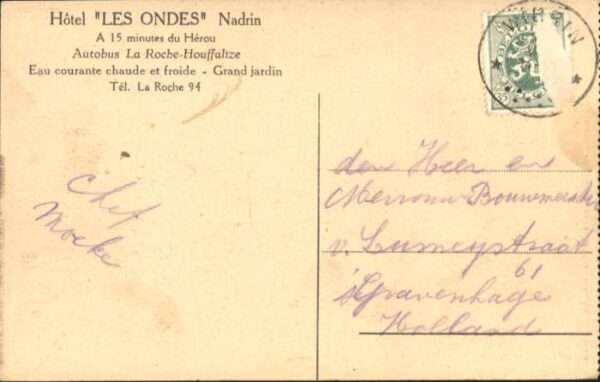 Hôtel "LES ONDES" Nadrin
A 15 minutes du Hérou
Autobus La Roche-Houffalize
Eau courante chaude et froide - Grand jardin
Tél. La Roche 94
den Heer en
Mevrouw Bouwmeester
v. Lumeystraat
61
's Gravenhage
Holland
Chef